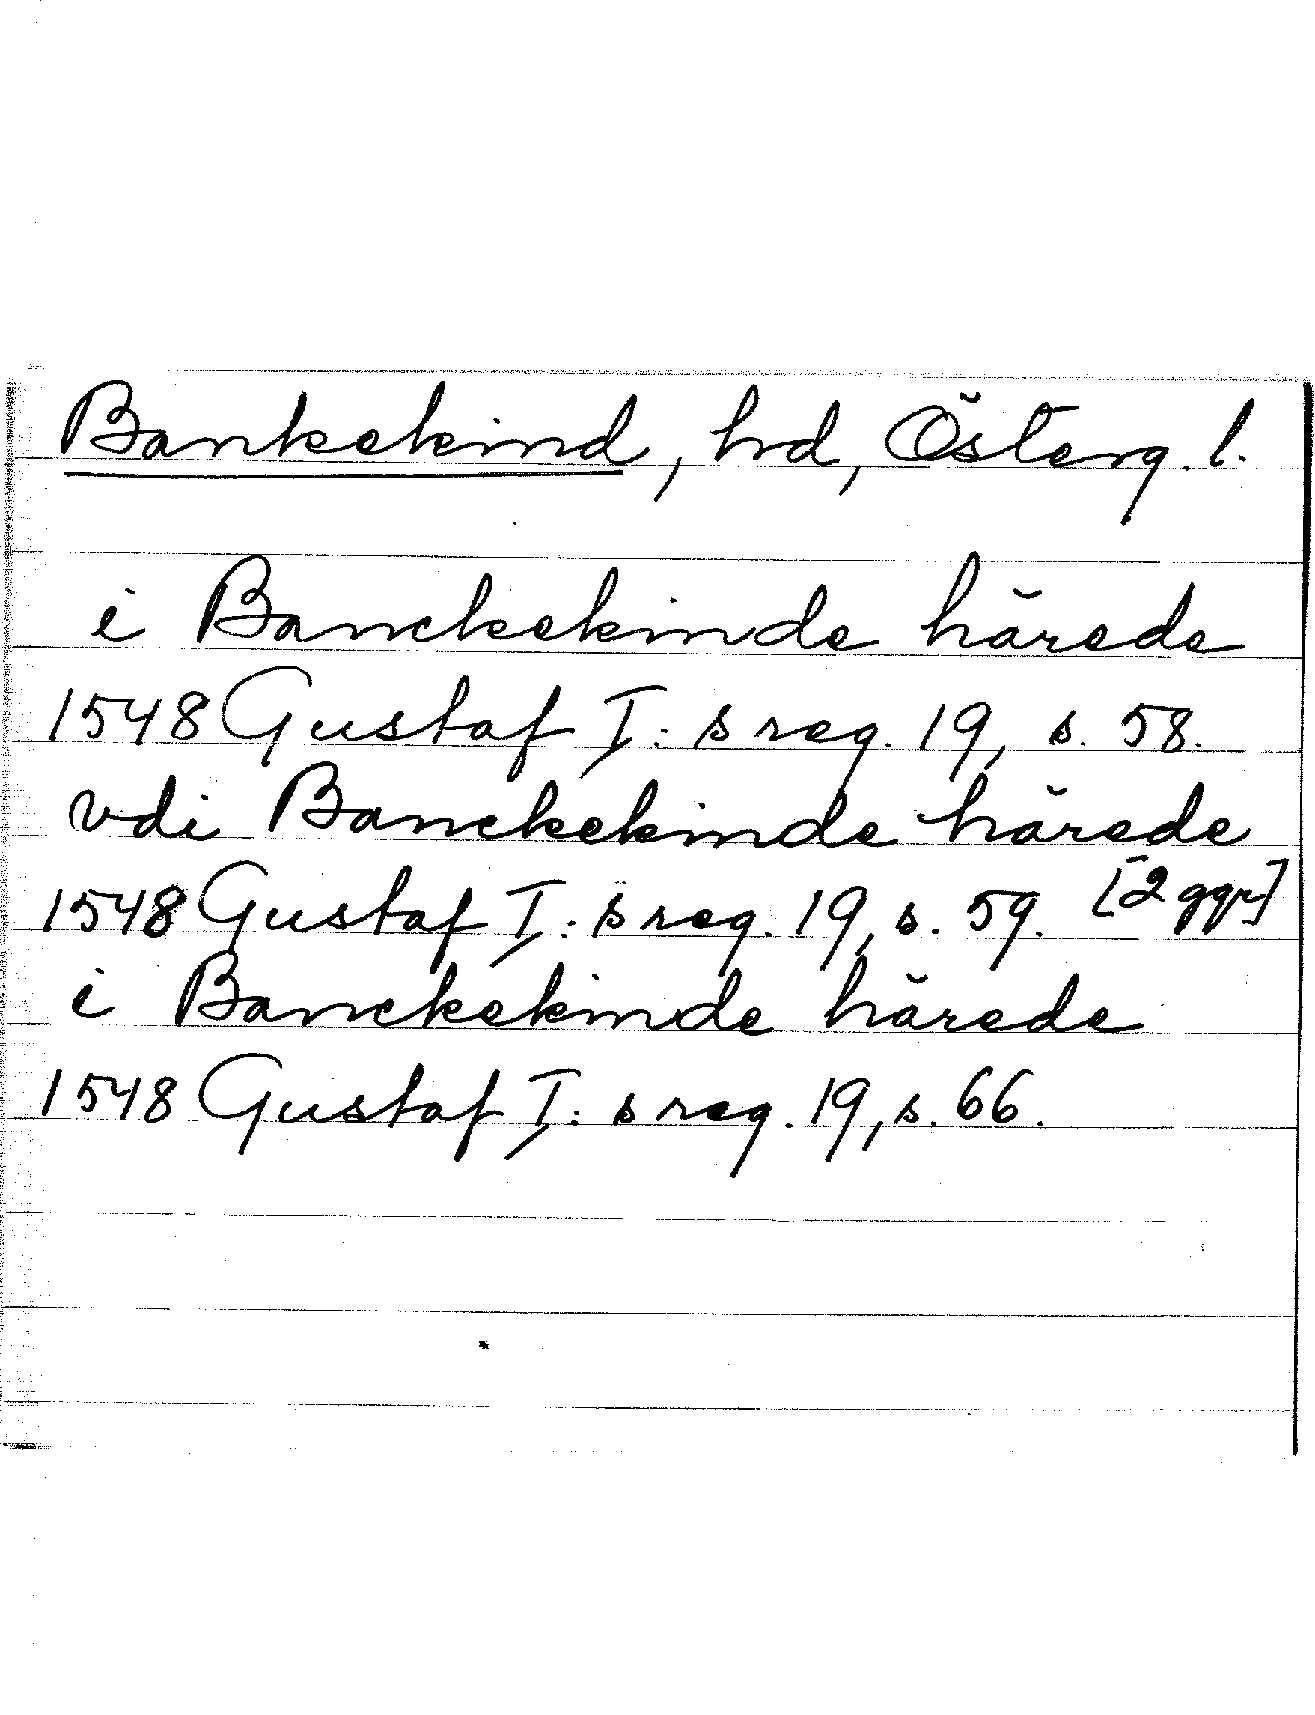 Bankekind, hd, Österg. l.
i Banckekinde härede
1548 Gustaf I:s reg. 19, s. 58.
vdi Banckekinde härede
1548 Gustaf I:s reg. 19, s. 59. [2 ggr]
i Banckekinde härede
1548 Gustaf I:s reg. 19, s. 66.